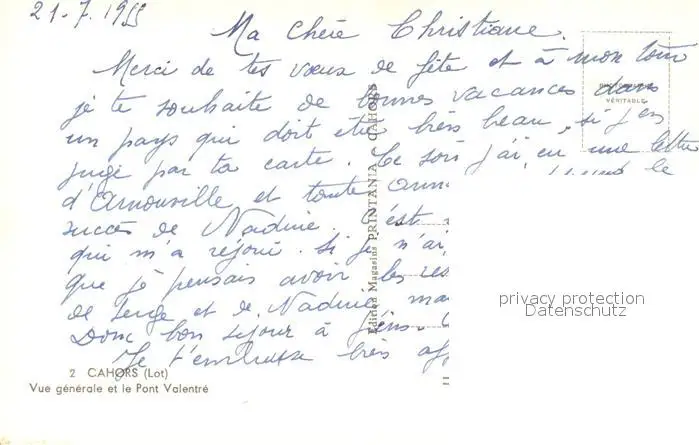 21.7.1955
Ma chère Christiane.
Merci de tes vœux de fête et à mon tour
je te souhaite de bonnes vacances dans
un pays qui doit être très beau, si j'en
juge par ta carte. Ce soir j'ai eu une lettre
d'Arnouville et toute le
succès de Nadine. C'est
qui m'a réjoui. Si je n'ai
que je pensais avoir les res
de Serge et de Nadine, ma
Donc bon séjour à
Je t'embrasse très aff
VÉRITABLE
Edition Magasins PRINTANIA - CAHORS
privacy protection
Datenschutz
2 CAHORS (Lot)
Vue générale et le Pont Valentré